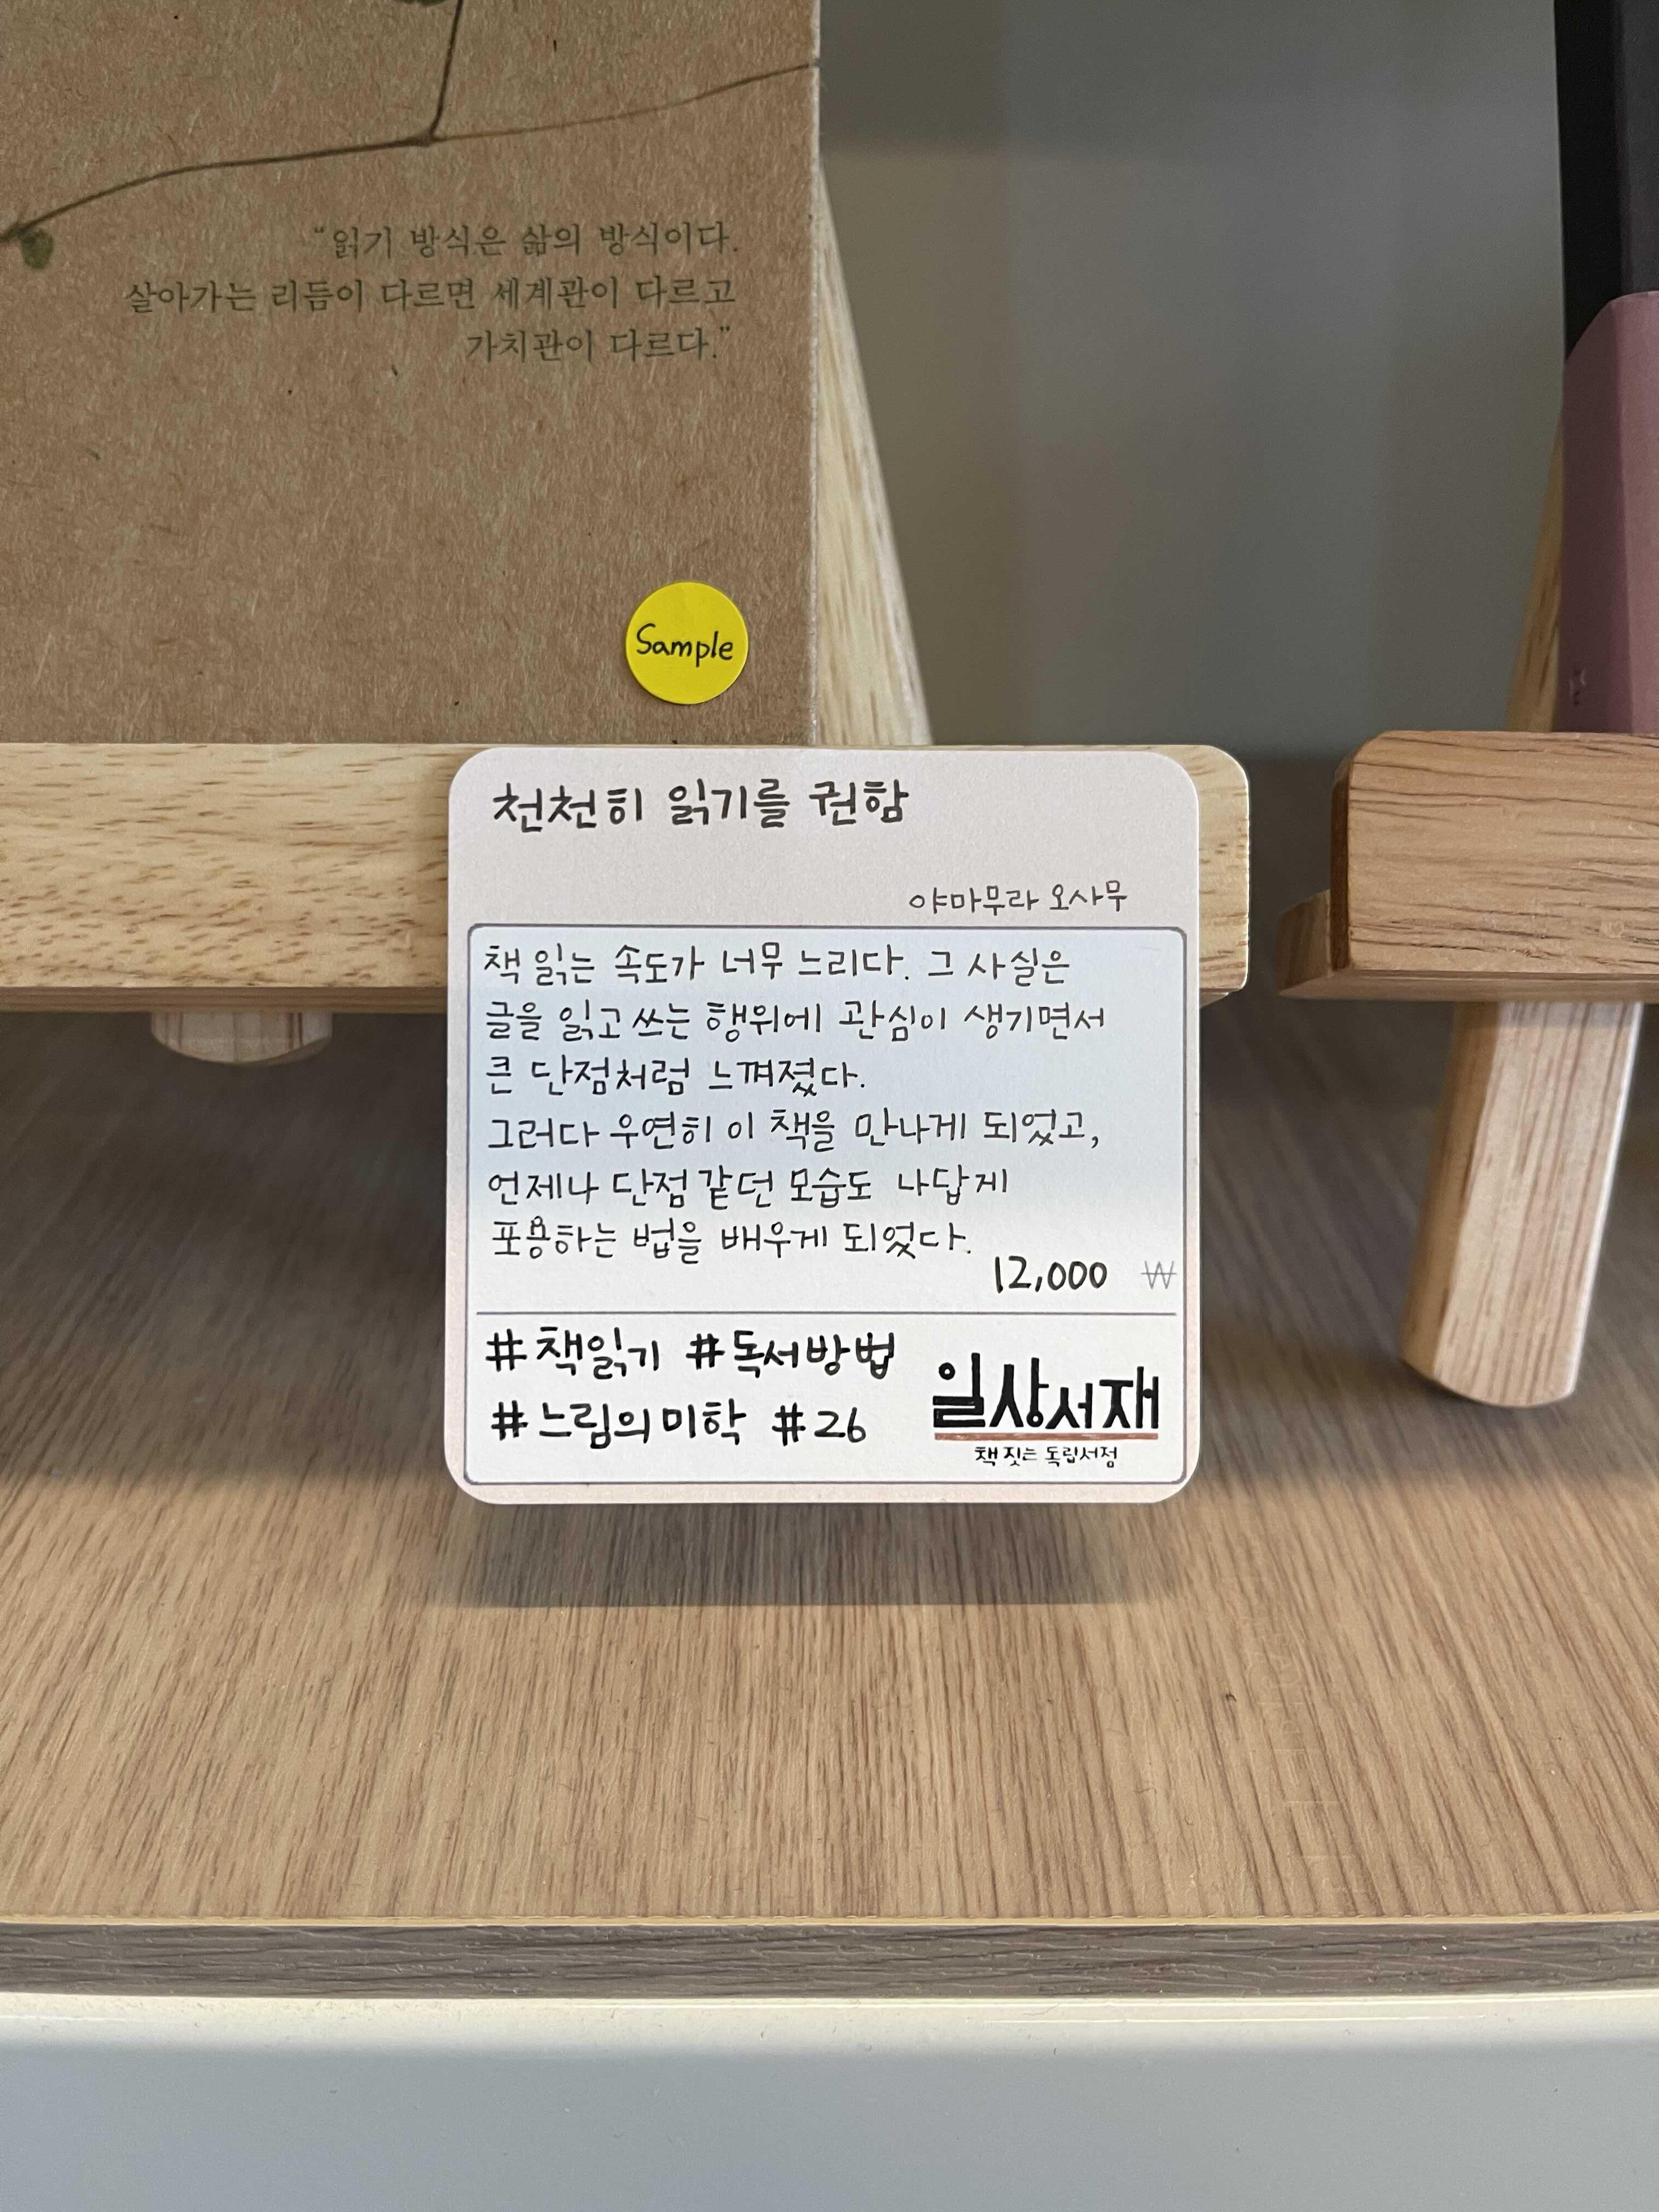 “읽기 방식은 삶의 방식이다.
살아가는 리듬이 다르면 세계관이 다르고
가치관이 다르다.”
Sample
천천히 읽기를 권함
야마무라 오사무
책 읽는 속도가 너무 느리다. 그 사실은
글을 읽고 쓰는 행위에 관심이 생기면서
큰 단점처럼 느껴졌다.
그러다 우연히 이 책을 만나게 되었고,
언제나 단점 같던 모습도 나답게
포용하는 법을 배우게 되었다.
12,000 ₩
#책읽기 #독서방법
#느림의미학 #26
일상서재
책 짓는 독립서점